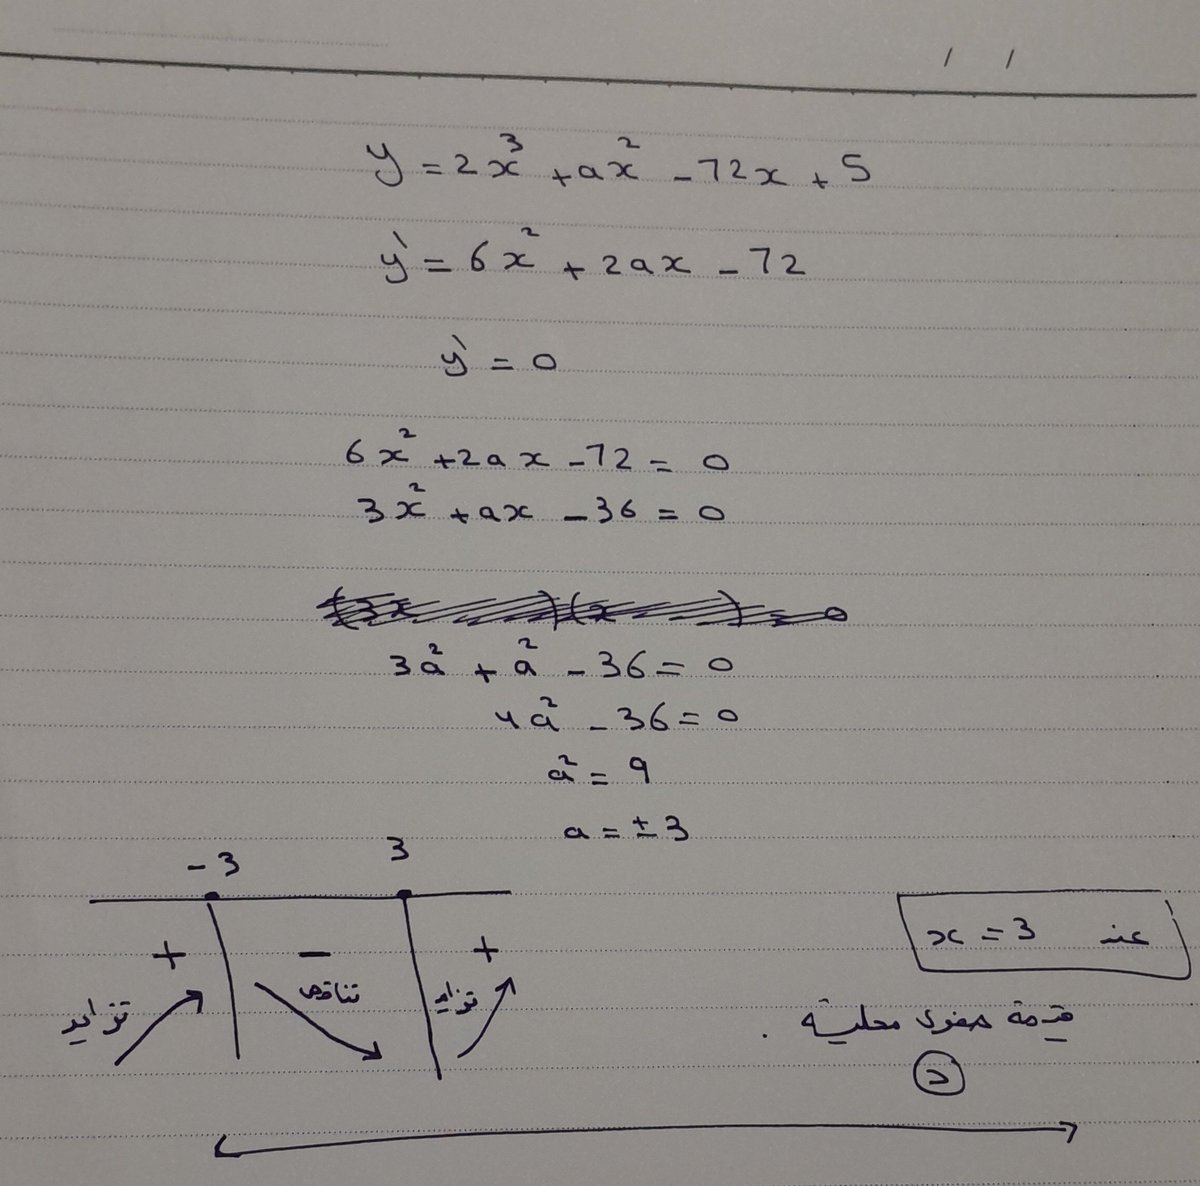 / /
y = 2x³ + ax² - 72x + 5
y' = 6x² + 2ax - 72
y' = 0
6x² + 2ax - 72 = 0
3x² + ax - 36 = 0
3a² + a² - 36 = 0
4a² - 36 = 0
a² = 9
a = ± 3
-3 3
+ - +
تزايد تناقص تزايد
عند x = 3
قيمة صغرى محلية .
د